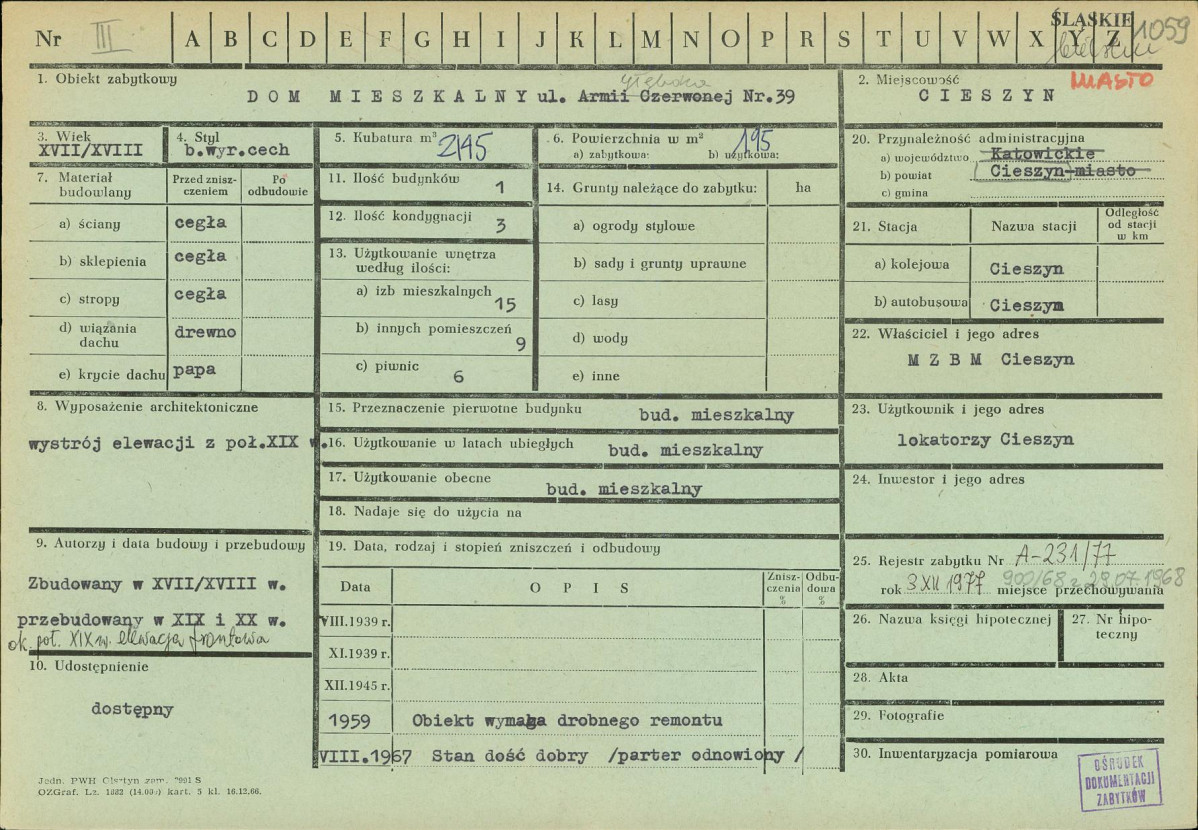 Nr III A B C D E F G H I J K L M N O P R S T U V W X Y Z ŚLĄSKIE 1059
bielskie
1. Obiekt zabytkowy
głęboka
DOM MIESZKALNY ul. Armii Czerwonej Nr.39
2. Miejscowość MIASTO
CIESZYN
3. Wiek
XVII/XVIII
4. Styl
b.wyr.cech
5. Kubatura m³ 2145
6. Powierzchnia w m² 195
a) zabytkowa: b) użytkowa:
7. Materiał budowlany
Przed zniszczeniem
Po odbudowie
a) ściany cegła
b) sklepienia cegła
c) stropy cegła
d) wiązania dachu drewno
e) krycie dachu papa
8. Wyposażenie architektoniczne
wystrój elewacji z poł.XIX w.
9. Autorzy i data budowy i przebudowy
Zbudowany w XVII/XVIII w.
przebudowany w XIX i XX w.
ok. poł. XIX w. elewacja frontowa
10. Udostępnienie
dostępny
11. Ilość budynków 1
12. Ilość kondygnacji 3
13. Użytkowanie wnętrza
według ilości:
a) izb mieszkalnych 15
b) innych pomieszczeń 9
c) piwnic 6
14. Grunty należące do zabytku: ha
a) ogrody stylowe
b) sady i grunty uprawne
c) lasy
d) wody
e) inne
15. Przeznaczenie pierwotne budynku bud. mieszkalny
16. Użytkowanie w latach ubiegłych bud. mieszkalny
17. Użytkowanie obecne bud. mieszkalny
18. Nadaje się do użycia na
19. Data, rodzaj i stopień zniszczeń i odbudowy
Data OPIS Zniszczenia % Odbudowa %
VIII.1939 r.
XI.1939 r.
XII.1945 r.
1959 Obiekt wymaga drobnego remontu
VIII.1967 Stan dość dobry /parter odnowiony /
20. Przynależność administracyjna
a) województwo Katowickie
b) powiat Cieszyn-miasto
c) gmina
21. Stacja Nazwa stacji Odległość od stacji w km
a) kolejowa Cieszyn
b) autobusowa Cieszyn
22. Właściciel i jego adres
M Z B M Cieszyn
23. Użytkownik i jego adres
lokatorzy Cieszyn
24. Inwestor i jego adres
25. Rejestr zabytku Nr A-231/77
rok 3 XII 1977 900/68 z 28.07.1968
miejsce przechowywania
26. Nazwa księgi hipotecznej
27. Nr hipoteczny
28. Akta
29. Fotografie
30. Inwentaryzacja pomiarowa
OŚRODEK
DOKUMENTACJI
ZABYTKÓW
Jedn. PWH Olsztyn zam. 2991 S
OZGraf. Lz. 1882 (14.000) kart. 5 kl. 16.12.66.